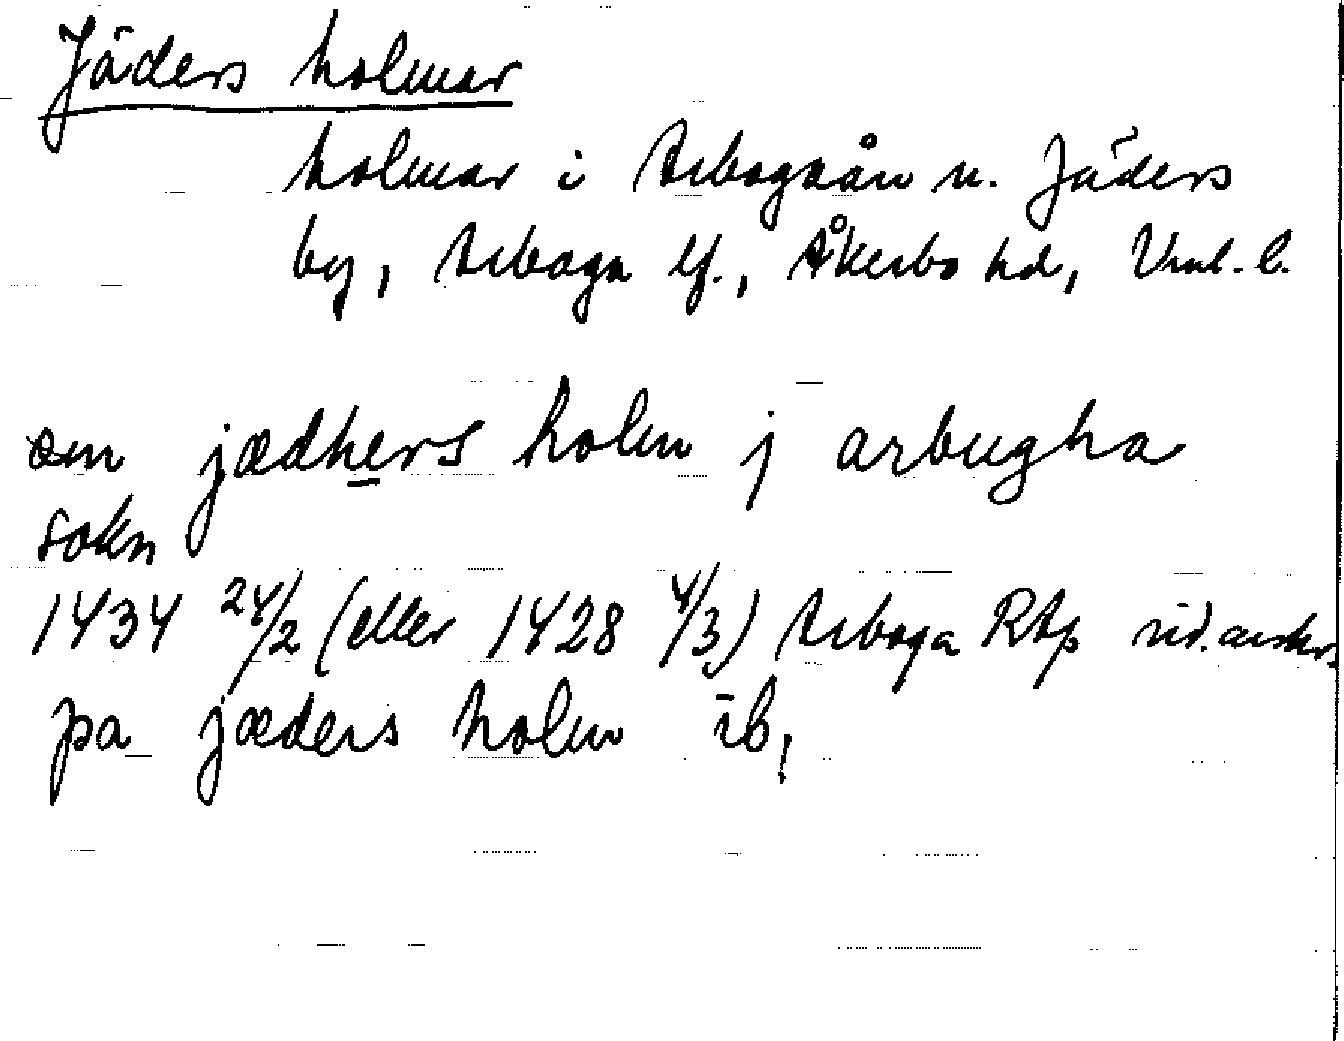 Jäders holmar
holmar i Arbogaån v. Jäders
by, Arboga lf., Åkerbo hd, Vml. l.
em jædhers holm j arbugha
sokn
1434 24/2 (eller 1428 4/3) Arboga Rtp
pa jæders holm ib,